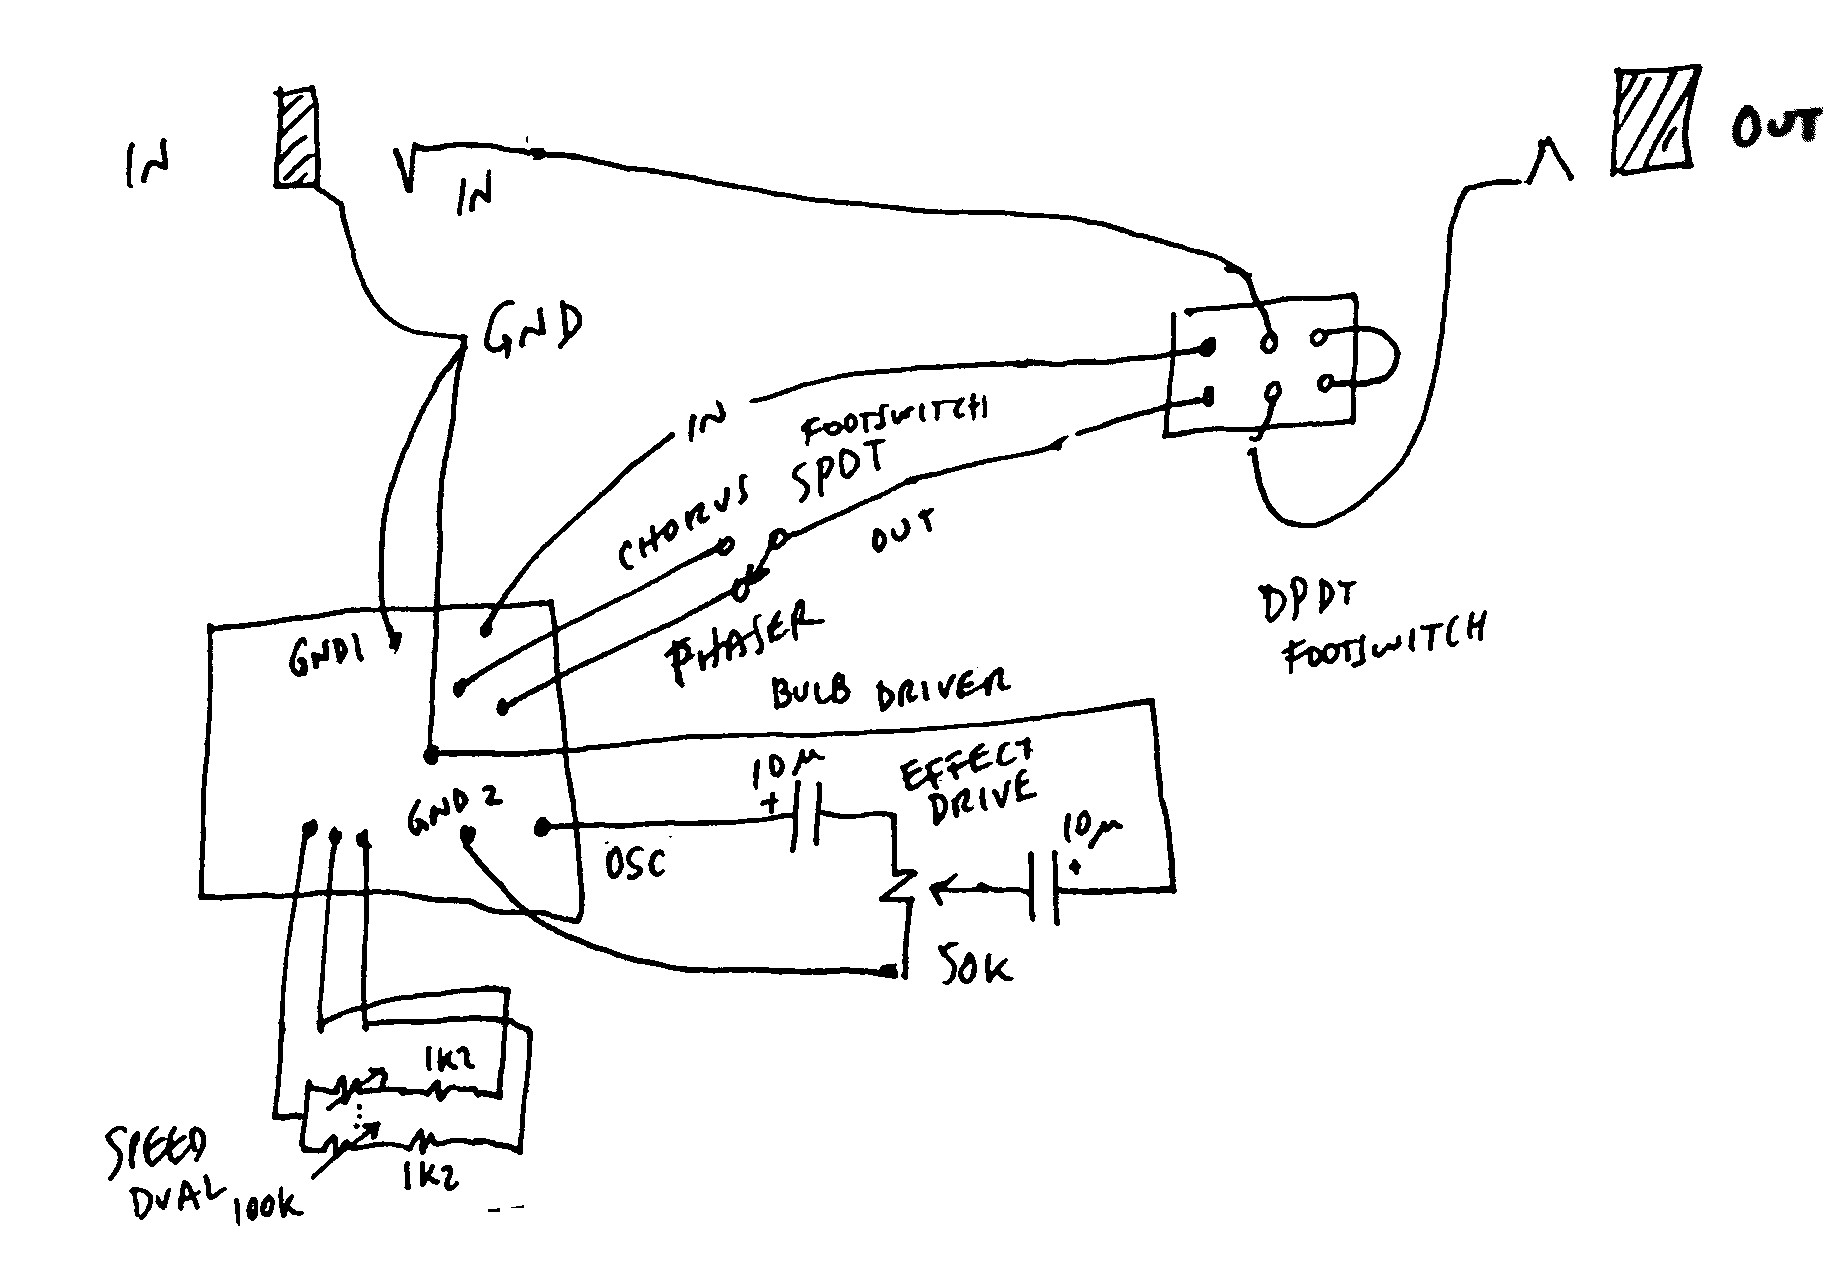 IN
OUT
IN
GND
IN
FOOTSWITCH
SPDT
CHORUS
OUT
DPDT
FOOTSWITCH
GND1
PHASER
BULB DRIVER
10µ
+
EFFECT
DRIVE
GND 2
10µ
+
OSC
50K
1K2
SPEED
DUAL
100K
1K2